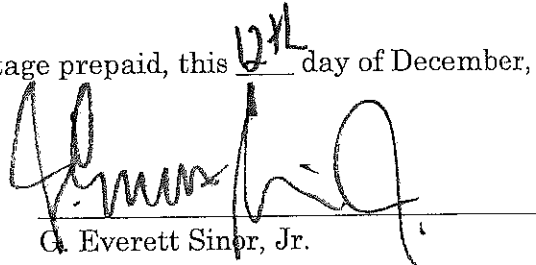 tage prepaid, this 12th day of December,
G. Everett Sinor, Jr.